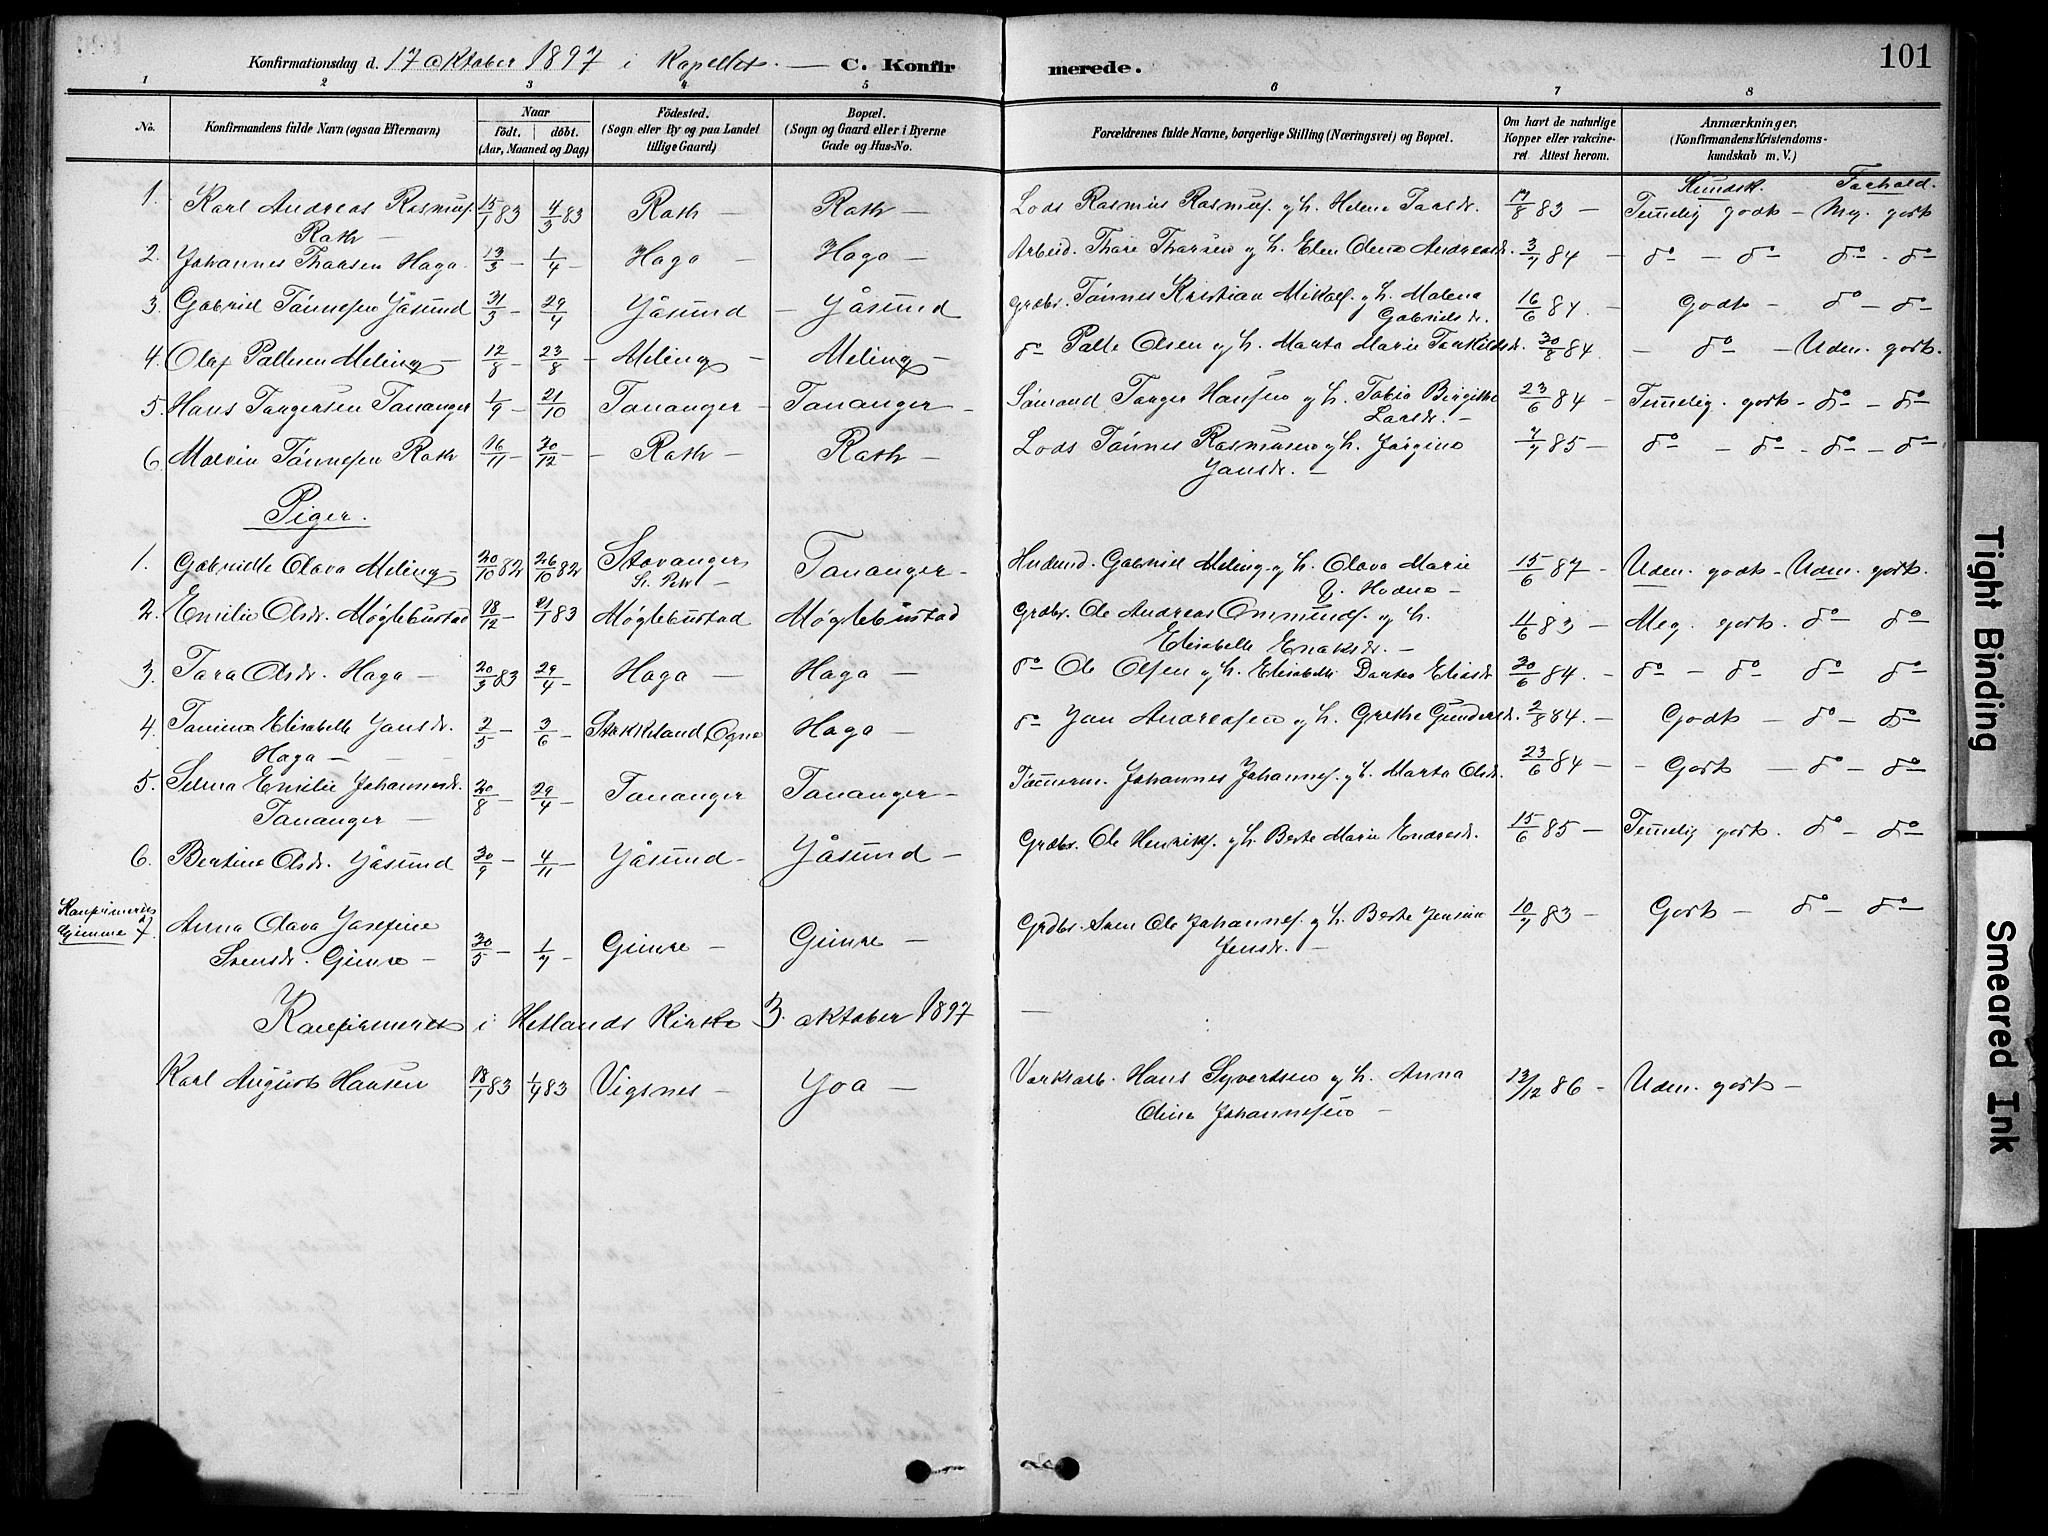 101
Konfirmationsdag d. 17 Oktober 1897 i Kapellet. — C. Konfirmerede.
1 2 3 4 5 6 7 8
No. Konfirmandens fulde Navn (ogsaa Efternavn) Naar födt. döbt. (Aar, Maaned og Dag) Födested. (Sogn eller By og paa Landet tillige Gaard) Bopæl. (Sogn og Gaard eller i Byerne Gade og Hus-No. Forældrenes fulde Navne, borgerlige Stilling (Næringsvei) og Bopæl. Om havt de naturlige Kopper eller vakcineret Attest herom. Anmærkninger, (Konfirmandens Kristendomskundskab m. V.)
Kundsk. Forhold.
1. Karl Andreas Rasmus. 15/1 83 4/3 83 Roth — Roth — Lods Rasmus Rasmus. og h. Helene 17/8 83 — Temelig godt — Meg. godt
Roth —
2. Johannes Thorsen Haga 13/3 — 1/4 — Haga — Haga — Arbeid. Thore Thorsen og h. Elen Olena Andreasdr. 3/7 84 — do — do do - do
3. Gabriel Tönnesen Jåsund 31/3 — 29/4 Jåsund — Jåsund Grdbr. Tönnes Kristian Mikals. og h. Malena Gabrielsdr. 16/6 84. Godt — do — do
4. Olaf Pallesen Meling — 12/8 — 23/8 — Meling — Meling — do Palle Olsen og h. Marta Marie Torkildsdr. 30/8 84. — do — Uden. godt.
5. Hans Torgersen Tananger 1/9 — 21/10 Tananger — Tananger — Sömand Torger Hansen og h. Tobia Birgitte Larsdr. — 23/6 84 — Temelig. godt — do — do
6. Malvin Tönnesen Roth 16/11 — 30/12 — Roth — Roth — Lods Tönnes Rasmusen og h. Jörgine Jansdr. — 7/7 85 — do — do — do — do
Piger.
1. Gabrielle Olava Meling — 20/10 82 26/10 82 Stavanger St. Petr — Tananger — Gabriel Meling og h. Olava Marie f. Hodne — 15/6 87 — Uden. godt — Uden. godt.
2. Emilie Olsdr. Møglebustad 18/12 — 21/1 83 Møglebustad Møglebustad Grdbr. Ole Andreas Ommunds. og h. Elisabelle Enoksdr. — 11/6 83 — Meg. godt. do do
3. Tora Olsdr. Haga — 20/3 83 29/4 — Haga — Haga — do Ole Olsen og h. Elisabelle Dortea Eliasdr. 20/6 84. — do — do do do
4. Tomine Elisabelle Jansdr. 2/5 — 3/6 — Stokkeland, Ogna Haga — do Jan Andreasen og h. Grethe Gundersdr. 2/8 84. — Godt — do — do
Haga —
5. Selma Emilie Johannesdr. 20/8 — 29/4 — Tananger Tananger — Tömerm. Johannes Johannes. og h. Marta Olsdr. 23/6 84 — Godt — do — do
Tananger —
6. Bertine Olsdr. Jåsund 30/9 — 4/11 — Jåsund — Jåsund — Grdbr. Ole Henriks. og h. Berte Marie Endresdr. 15/6 85 — Temelig godt. do — do
Konfirmeret Gimre 7. Anna Olava Josefine Svensdr. Gimre — 30/5 — 1/7 — Gimre — Gimre — Grdbr. Sven Ole Johannes. og h. Berte Jensine Jensdr. — 10/7 83 — Godt — do — do
Konfirmeret i Hetlands Kirke 3. oktober 1897 —
Karl August Hansen 18/1 83 1/4 83 Vigsnes — Joa — Verksarb. Hans Syvertsen og h. Anna Olina Johannesen — 13/12 86 — Uden. godt —
Tight Binding
Smeared Ink